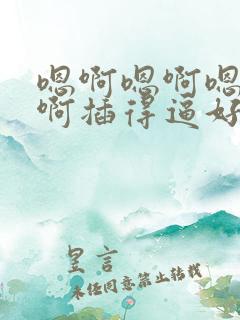 嗯啊嗯啊嗯
啊插得逼好
皇言
未经同意禁止转载